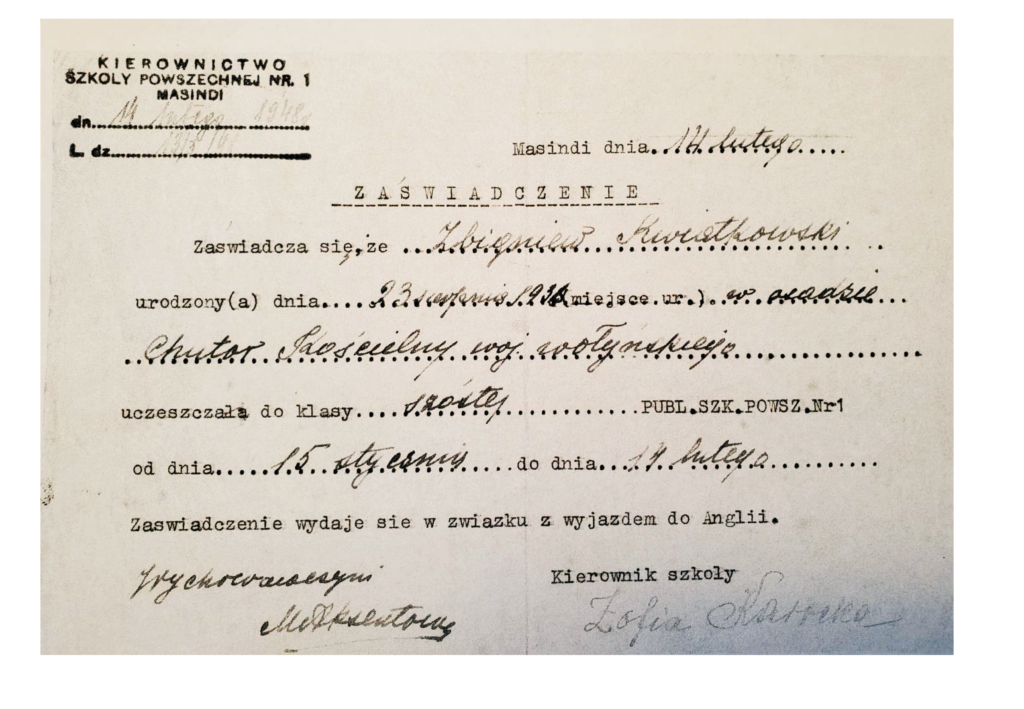 KIEROWNICTWO
SZKOLY POWSZECHNEJ NR. 1
MASINDI
dn. 14 lutego 1948
L. dz.
Masindi dnia. 14 lutego
ZAŚWIADCZENIE
Zaświadcza się,że Zbigniew Kwiatkowski
urodzony(a) dnia 23 sierpnia (miejsce.ur.) w osadzie
Chutor Kościelny woj wołyńskiego
uczeszczała do klasy szóstej PUBL.SZK.POWSZ.Nr1
od dnia 15 stycznia do dnia 14 lutego
Zaswiadczenie wydaje sie w zwiazku z wyjazdem do Anglii.
Wychowawczyni
Kierownik szkoły
Zofia